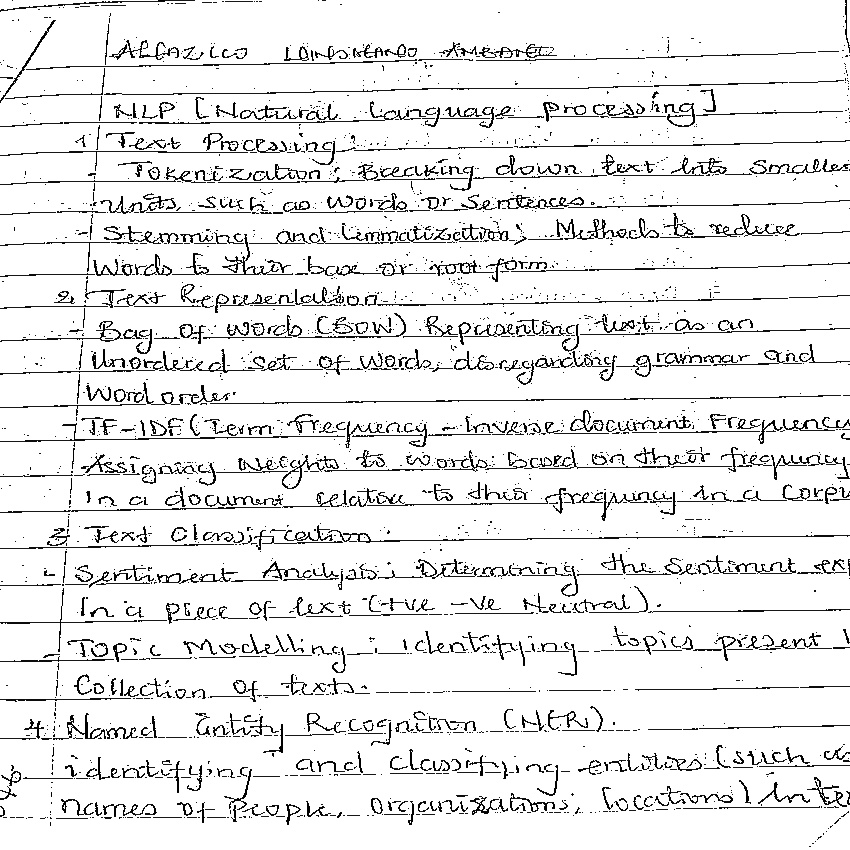 NLP [Natural Language processing]
1 Text Processing:
- Tokenization; Breaking down text into Smaller
Units such as Words or Sentences.
- Stemming and Lemmatization; Methods to reduce
Words to their base or root form
2. Text Representation
- Bag Of Words (BOW) Representing text as an
Unordered set of Words, disregarding grammar and
Word order.
- TF-IDF (Term Frequency - Inverse document Frequency
Assigning Weights to Words based on their frequency
In a document relative to their frequency in a Corpu
3 Text Classification:
- Sentiment Analysis; Determining the Sentiment exp
In a piece of text (+ve -ve Neutral).
- Topic Modelling: identifying topics present i
Collection Of texts.
4 Named Entity Recognition (NER).
identifying and Classifying entities (such as
names of People, organizations, locations) in te